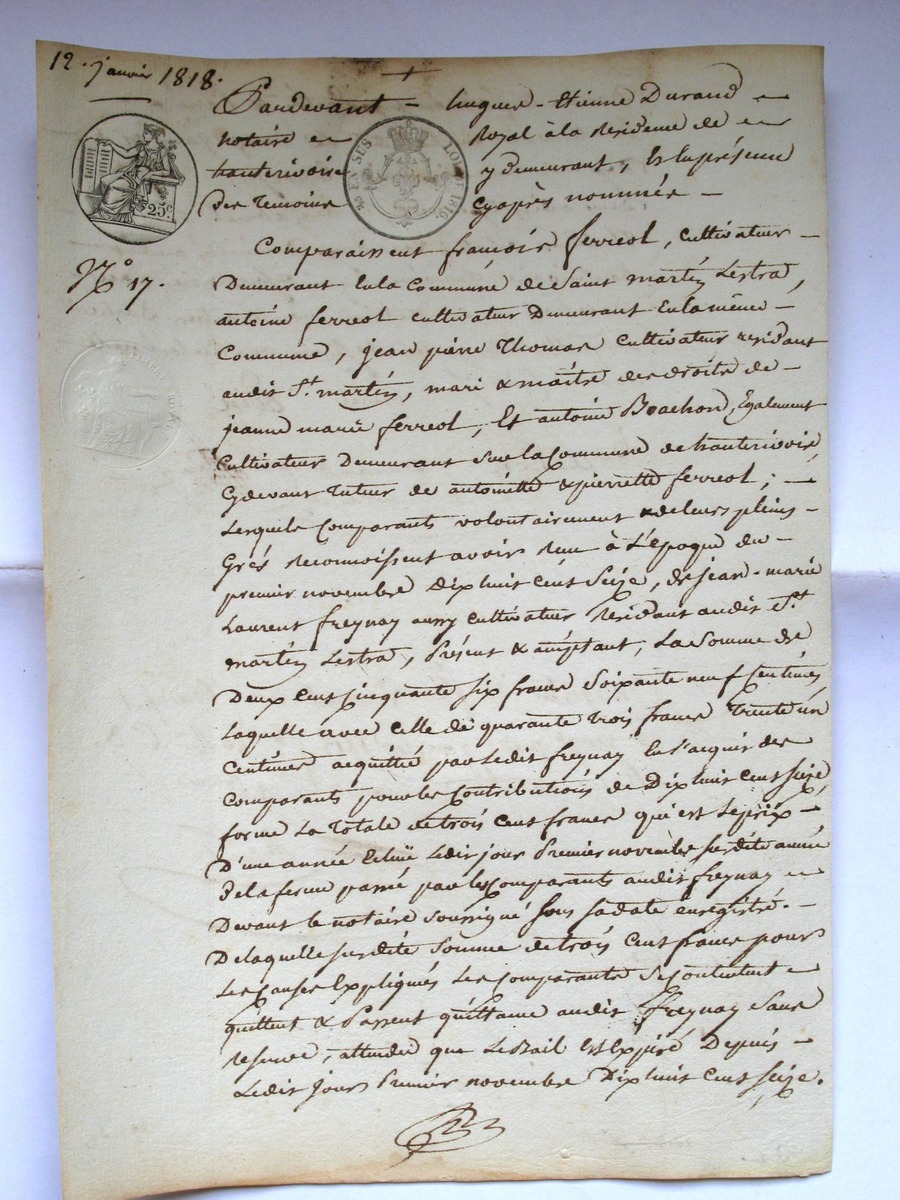 12. janvier 1818.
Pardevant - hugues - Etienne Durand
notaire Royal à la Residence de
hauterivoire y demeurant, Et En présence
des temoins cyaprès nommés -
25c
EN SUS LOI 1816.
N.° 17.
Comparaissent françois ferreol, cultivateur -
Demeurant En la Commune de Saint martin Lestra,
antoine ferreol cultivateur Demeurant En la même -
Commune, jean pierre Thomas Cultivateur residant
audit St. martin, mari & maître des droits de -
jeanne marie ferreol, Et antoine Boachon, Egalement
Cultivateur Demeurant Sur la Commune de hauterivoire
Cydevant tuteur de antoinette & pierrette ferreol; -
Lesquels Comparants volontairement & de leurs pleins -
Grés reconnoissent avoir Reçu à L'époque du -
premier novembre Dix huit Cent Seize, de jean-marie
Laurent freynay aussy Cultivateur Residant audit St.
martin Lestra, Présent & acceptant, La Somme de
Deux Cent cinquante six francs Soixante neuf Centimes
Laquelle avec celle de quarante trois francs Trente un
Centimes acquitté par Ledit freynay En L'acquit des
Comparants pour les Contributions de Dix huit Cent Seize,
forme La Totale de trois Cent francs qui est Le prix -
D'une année Echuë Ledit jour Premier novembre susdite année
De la ferme passé par les Comparants audit freynay
Devant le notaire Soussigné Sous Sa date enregistré. -
De laquelle susdite Somme de trois Cent francs pour
Les Causes Expliqués Les Comparants Se Contentent
quittent & Passent quittance audit freynay Sans
reserve, attendu que Le Bail Est Expiré Depuis -
Ledit jours Premier novembre Dix huit Cent Seize.